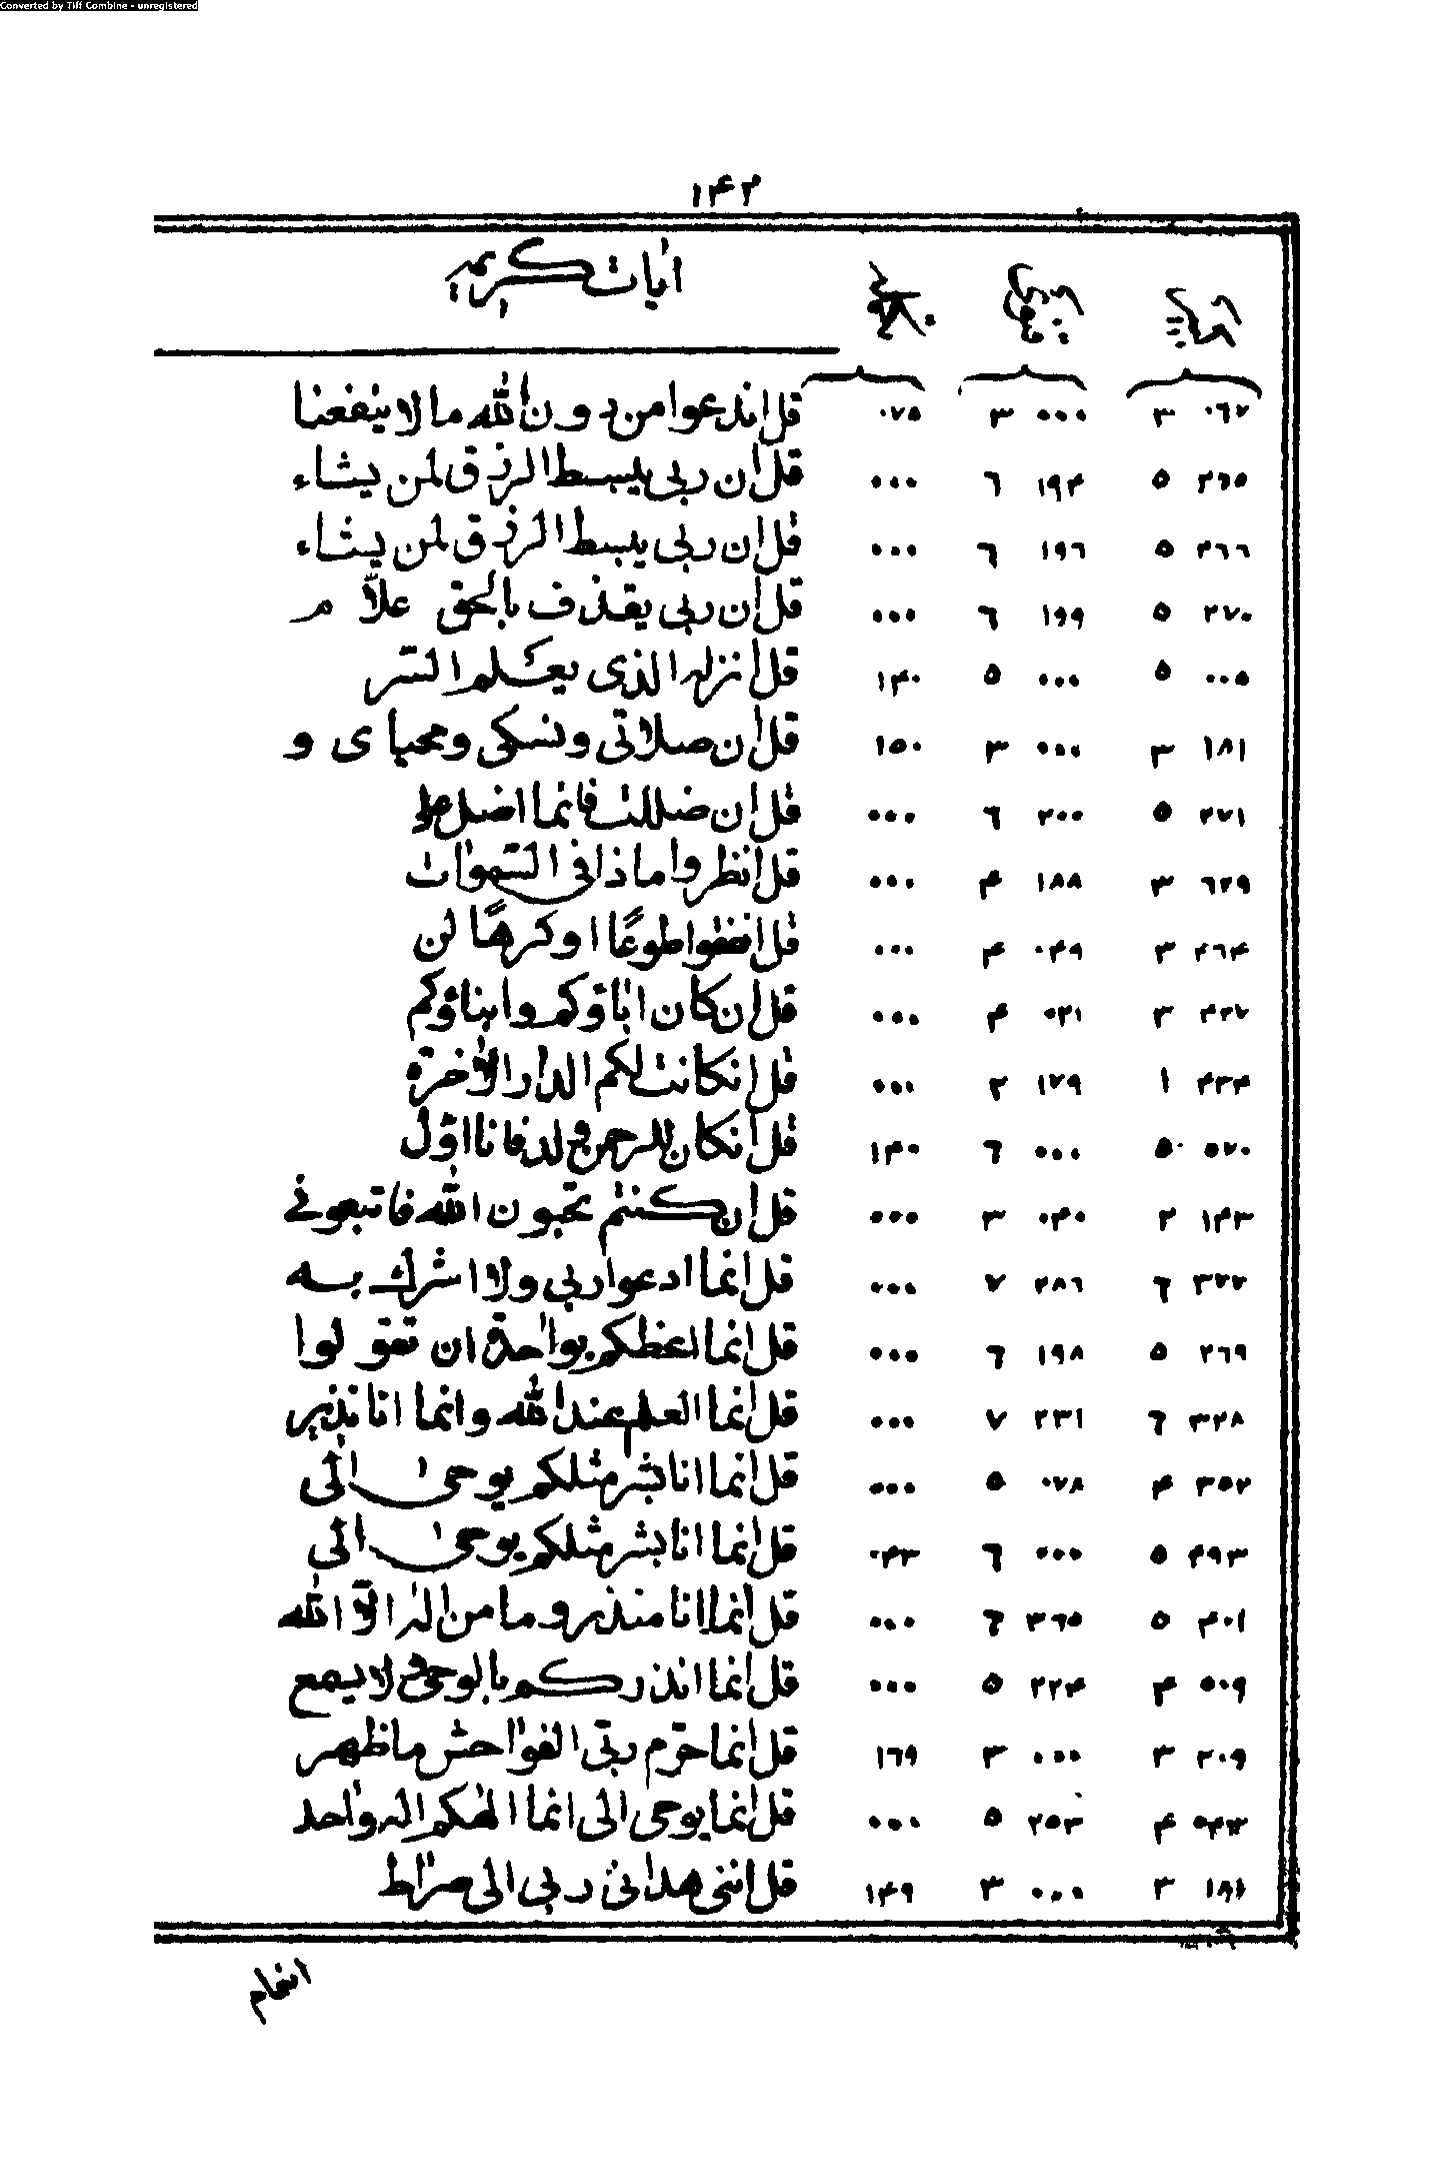 Converted by Tiff Combine - unregistered
١٤٢
آيات كريمه
٠٦٧ ٣ ٠٠٠ ٣ ٠٧٥ قل اندعوا من دون الله ما لا ينفعنا
٢٦٥ ٥ ١٩٤ ٦ ٠٠٠ قل ان ربى يبسط الرزق لمن يشاء
٢٦٦ ٥ ١٩٦ ٦ ٠٠٠ قل ان ربى يبسط الرزق لمن يشاء
٢٧٠ ٥ ١٩٩ ٦ ٠٠٠ قل ان ربى يقذف بالحق علاّ م
٠٠٥ ٥ ٠٠٠ ٥ ١٤٠ قل انزله الذى يعلم السّر
١٨١ ٣ ٠٠٠ ٣ ١٥٠ قل ان صلاتى ونسكى ومحياى و
٢٧١ ٥ ٢٠٠ ٦ ٠٠٠ قل ان ضللت فانما اضل على
٦٢٩ ٣ ١٨٨ ٤ ٠٠٠ قل انظروا ماذا فى السّموات
٤٦٤ ٣ ٠٤٩ ٤ ٠٠٠ قل انفقوا طوعًا اوكرهًا لن
٤٢٧ ٣ ٠٢١ ٤ ٠٠٠ قل ان كان اباؤكم وابناؤكم
٤٣٤ ١ ١٧٩ ٢ ٠٠٠ قل انكانت لكم الدار الاخرة
٥٧٠ ٥ ٠٠٠ ٦ ١٤٠ قل انكان للرحمن ولد فانا اوّل
١٤٣ ٢ ٠٤٠ ٣ ٠٠٠ قل ان كنتم تحبون الله فاتبعونى
٣٧٧ ٦ ٢٨٦ ٧ ٠٠٠ قل انما ادعوا ربى ولا اشرك به
٢٦٩ ٥ ١٩٨ ٦ ٠٠٠ قل انما اعظكم بواحدة ان تقولوا
٣٢٨ ٦ ٢٣١ ٧ ٠٠٠ قل انما العلم عند الله وانما انا نذير
٣٥٢ ٤ ٠٧٨ ٥ ٠٠٠ قل انما انا بشر مثلكم يوحى الىّ
٤٩٣ ٥ ٠٠٠ ٦ ٠٤٣ قل انما انا بشر مثلكم يوحى الىّ
٤٠١ ٥ ٣٦٥ ٦ ٠٠٠ قل انما انا منذر وما من اله الاّ الله
٥٠٩ ٤ ٢٢٤ ٥ ٠٠٠ قل انما انذركم بالوحى ولا يسمع
٢٠٩ ٣ ٠٠٠ ٣ ١٦٩ قل انما حرّم ربّى الفواحش ما ظهر
٤ ٢٥٣ ٥ ٠٠٠ قل انما يوحى الى انما الهكم اله واحد
١٨١ ٣ ٠٠٠ ٣ ١٤٩ قل اننى هدانى ربى الى صراط
انعام